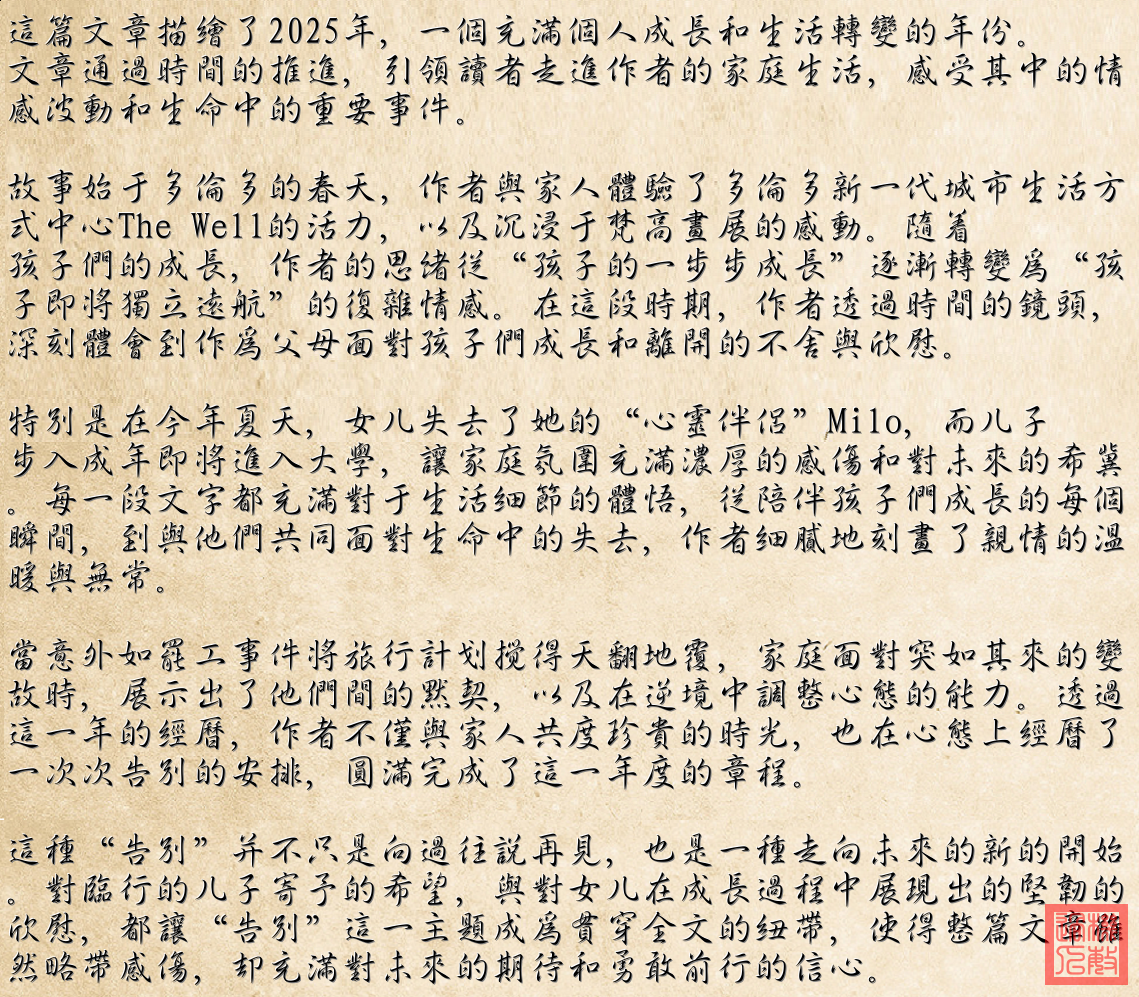 這篇文章描繪了2025年，一個充滿個人成長和生活轉變的年份。
文章通過時間的推進，引領讀者走進作者的家庭生活，感受其中的情
感波動和生命中的重要事件。
故事始于多倫多的春天，作者與家人體驗了多倫多新一代城市生活方
式中心The Well的活力，以及沉浸于梵高畫展的感動。隨着
孩子們的成長，作者的思緒從“孩子的一步步成長”逐漸轉變爲“孩
子即將獨立遠航”的復雜情感。在這段時期，作者透過時間的鏡頭，
深刻體會到作爲父母面對孩子們成長和離開的不舍與欣慰。
特別是在今年夏天，女儿失去了她的“心靈伴侶”Milo，而儿子
步入成年即將進入大學，讓家庭氛圍充滿濃厚的感傷和對未來的希冀
。每一段文字都充滿對于生活細節的體悟，從陪伴孩子們成長的每個
瞬間，到與他們共同面對生命中的失去，作者細膩地刻畫了親情的溫
暖與無常。
當意外如罷工事件將旅行計划攪得天翻地覆，家庭面對突如其來的變
故時，展示出了他們間的默契，以及在逆境中調整心態的能力。透過
這一年的經曆，作者不僅與家人共度珍貴的時光，也在心態上經曆了
一次次告別的安排，圓滿完成了這一年度的章程。
這種“告別”并不只是向過往説再見，也是一種走向未來的新的開始
。對臨行的儿子寄予的希望，與對女儿在成長過程中展現出的堅韌的
欣慰，都讓“告別”這一主題成爲貫穿全文的紐帶，使得整篇文章雖
然略帶感傷，却充滿對未來的期待和勇敢前行的信心。